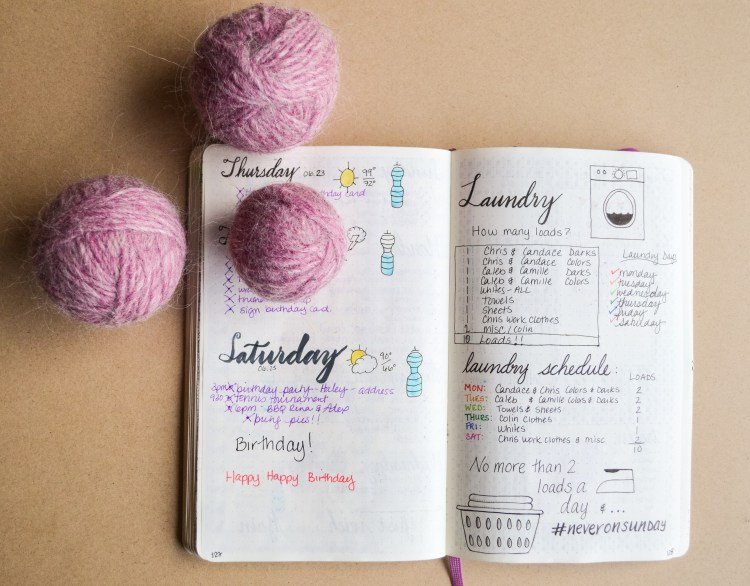 Thursday 06.23 99° 72°
birthday card
sign birthday card
Saturday 06.25 90° 66°
birthday party - Haley - address
tennis tournament
6pm BBQ Rena & Adex
bring pies!!
Birthday!
Happy Happy Birthday
127
Laundry
How many loads?
1 Chris & Candace Darks
1 Chris & Candace Colors
1 Caleb & Camille Darks
1 Caleb & Camille Colors
1 Whites - ALL
1 Towels
1 Sheets
1 Chris Work Clothes
2 Misc / Colin
10 Loads!!
Laundry Days
monday
tuesday
wednesday
thursday
friday
saturday
laundry schedule: LOADS
MON: Candace & Chris Colors & Darks 2
TUES: Caleb & Camille Colors & Darks 2
WED: Towels & Sheets 2
THURS: Colin Clothes 1
FRI: Whites 1
SAT: Chris Work clothes & misc 2
10
No more than 2
loads a
day & ...
#neveronsunday